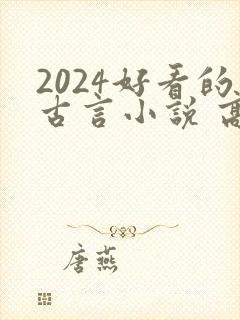 2024好看的
古言小说 高
唐燕